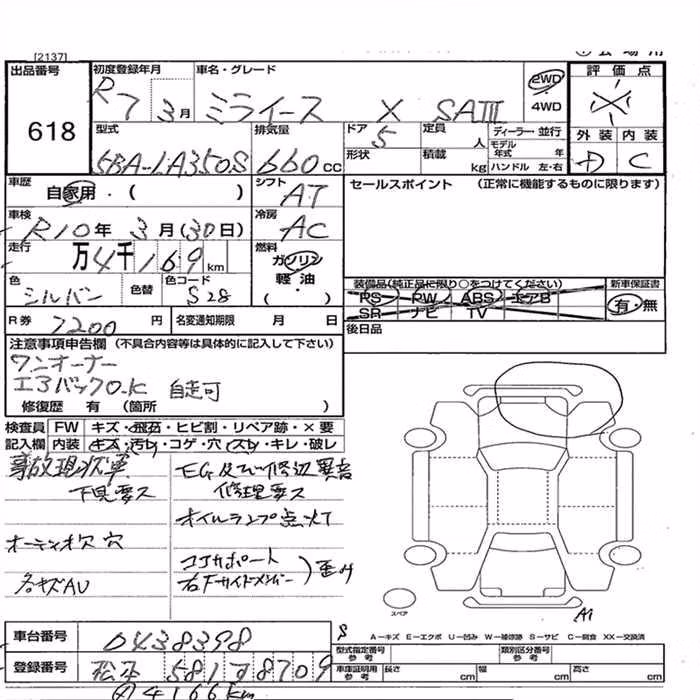 [2137]
出品番号
618
初度登録年月
R7 3月
車名・グレード
ミライース X SAIII
2WD
4WD
評価点
外装 内装
D C
型式
5BA-LA350S
排気量
660 cc
ドア
5
形状
定員
人
積載
kg
ディーラー・並行
モデル年式 年
ハンドル 左・右
車歴
自家用・( )
シフト
AT
セールスポイント (正常に機能するものに限ります)
車検
R10年 3月(30日)
冷房
AC
走行
万4千169km
燃料
ガソリン
軽油
( ・ )
色
シルバー
色替
色コード
S28
装備品(純正品に限り○をつけてください)
PS PW ABS エアB
SR ナビ TV
新車保証書
有・無
R券
7200円
名変通知期限 月 日
後日品
注意事項申告欄 (不具合内容等は具体的に記入して下さい)
ワンオーナー
エアバックO.K 自走可
修復歴 有 (箇所 )
検査員
記入欄
FW キズ・飛石・ヒビ割・リペア跡・×要
内装 キズ・汚レ・コゲ・穴・スレ・キレ・破レ
事故現状車
下見要ス
EG及び修辺異音
修理要ス
オイルランプ点灯
オーディオ欠 穴
各キズAU
コアサポート
右Fサイドメンバー
歪み
スペア
A1
S
A－キズ E－エクボ U－凹み W－補修跡 S－サビ C－腐食 XX－交換済
車台番号
0438398
登録番号
松本 581 す 8709
型式指定番号
参考
類別区分番号
参考
車庫証明用
参考
長さ cm
幅 cm
高さ cm
4166km